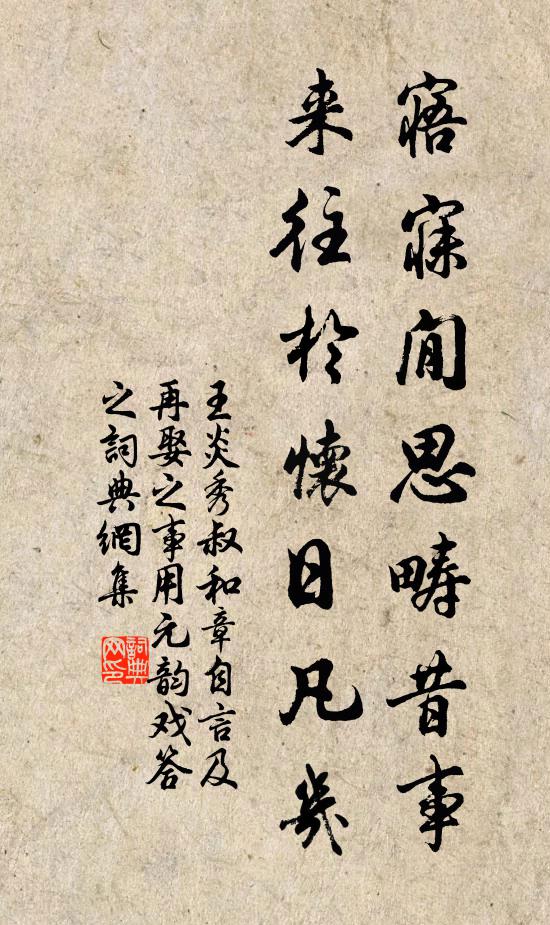 寤寐閒思疇昔事
来往於懷日凡幾
王炎秀叔和章自言及
再娶之事用元韵戏答
之詞典網集
詞典
网印